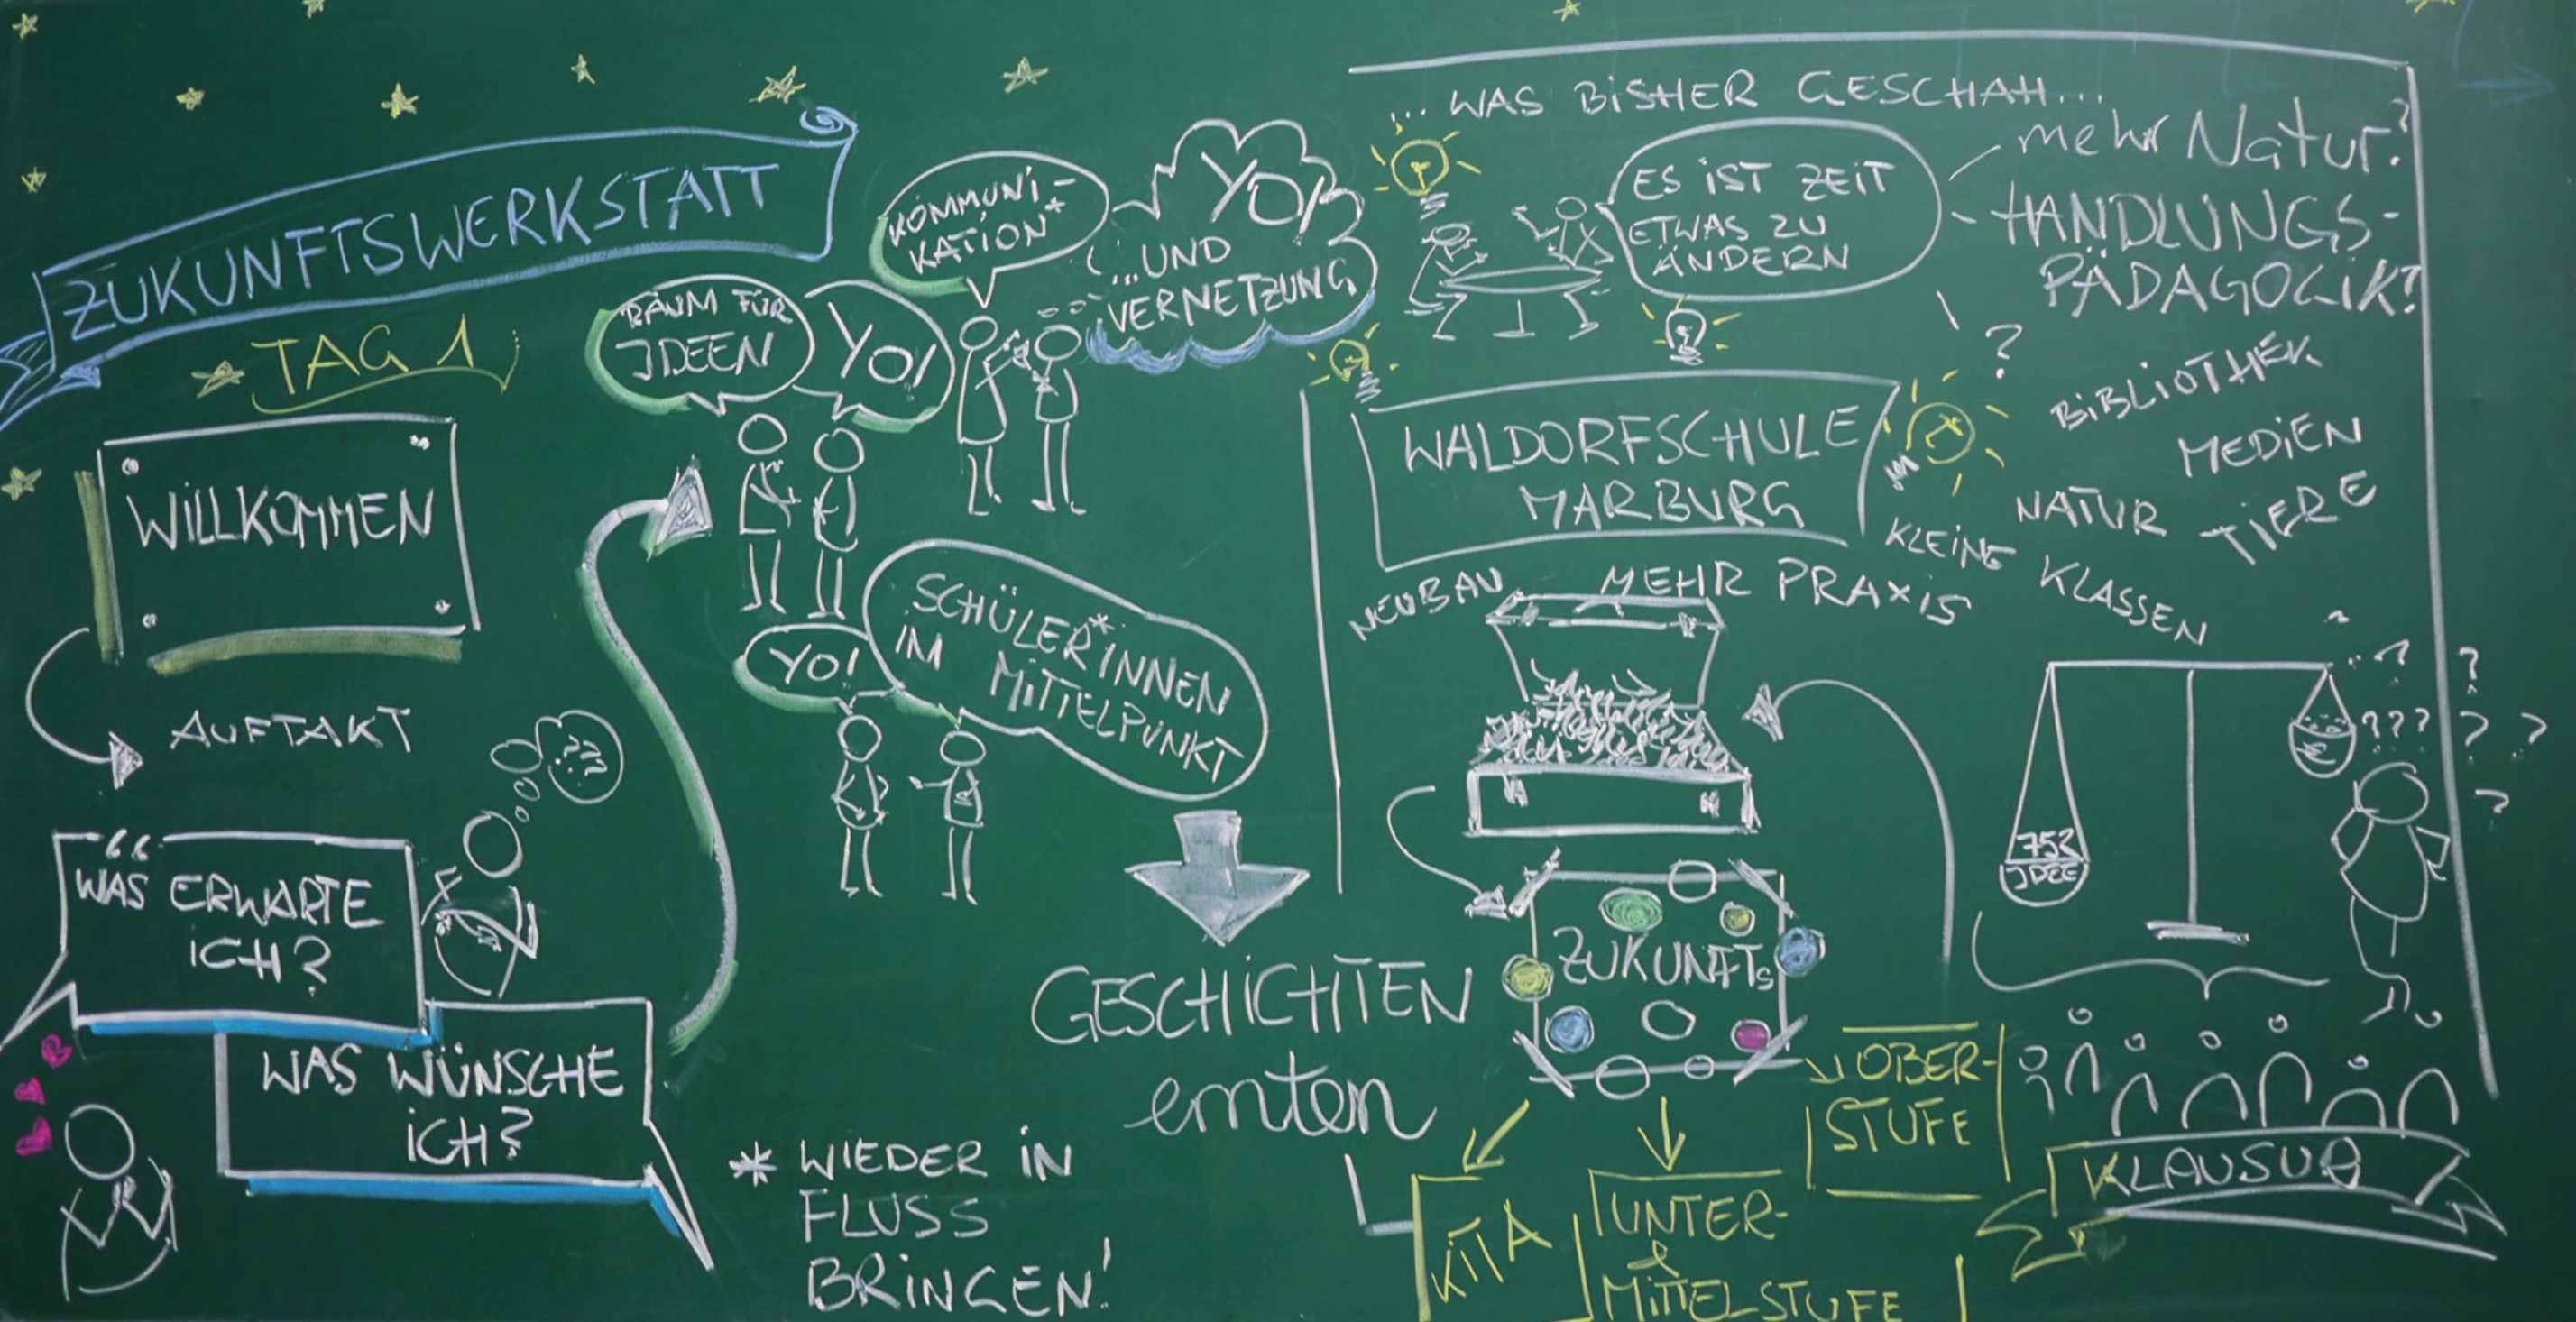 ZUKUNFTSWERKSTATT
TAG 1
WILLKOMMEN
AUFTAKT
??
“
WAS ERWARTE
ICH?
WAS WÜNSCHE
ICH?
RAUM FÜR
IDEEN
YO!
KOMMUNI-
KATION*
YO!
...UND
VERNETZUNG
YO!
SCHÜLER*INNEN
IM MITTELPUNKT
* WIEDER IN
FLUSS
BRINGEN!
GESCHICHTEN
ernten
... WAS BISHER GESCHAH...
ES IST ZEIT
ETWAS ZU
ÄNDERN
mehr Natur?
HANDLUNGS-
PÄDAGOGIK?
?
WALDORFSCHULE
MARBURG
BIBLIOTHEK
MEDIEN
NATUR
TIERE
KLEINE KLASSEN
NEUBAU
MEHR PRAXIS
752
IDEE
€
? ? ? ? ? ? ? ?
ZUKUNFTS
KITA
UNTER-
&
MITTELSTUFE
OBER-
STUFE
KLAUSUR